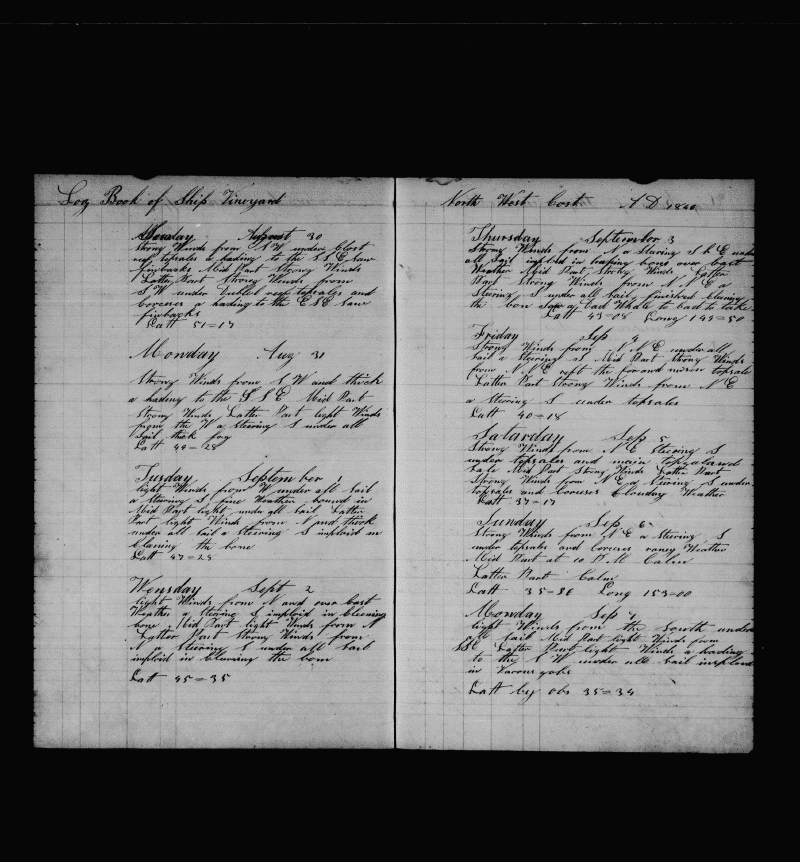 Log Book of Ship Vineyard
Monday August 30
Strong Winds from S W under Closs
reef topsales a hading to the S S E saw
finbacks Mid Part Strong Winds
Latter Part Strong Winds from
S W under dubled reef topsales and
Corcses a hading to the E S E saw
finbacks
Latt 51=17
Monday Aug 31
Strong Winds from S W and thick
a hading to the S S E Mid Part
Strong Winds Latter Part light Winds
from the W a steering S under all
Sail thick fog
Latt 49=28
Tusday September 1
light Winds from W under all Sail
a steering S fine Weather bound in
Mid Part light under all Sail Latter
Part light Winds from N and thick
under all Sail a steering S imploid in
the bone
Latt 47=28
Wensday Sept 2
light Winds from N and over Cast
Weather a steering S imploid in cleaning
bone Mid Part light Winds from N
Latter Part Strong Winds from
N a Steering S under all Sail
imploid in the bone
Latt 45=35
North West Cost A D 1840
Thursday September 3
Strong Winds from N a Stearing S b E under
all Sail imploid in bone over Cast
Weather Mid Part Strong Winds Latter
Part Strong Winds from N N E a
Stearing S under all Sail finished
the bon Saw a bad Whale to bad to take
Latt 43=08 Long 149=50
Friday Sep 4
Strong Winds from N N E under all
Sail a Steering S Mid Part Strong Winds
from N N E reeft the for and misen topsale
Latter Part Strong Winds from N E
a Steering S under topsales
Latt 40=18
Satarday Sep 5
Strong Winds from N E Steering S
under topsales and main
Sale Mid Part Strong Winds Latter Part
Strong Winds from N E a Steering S under
topsales and Corcses Cloudy Weather
Latt 37=17
Sunday Sep 6
Strong Winds from N E a Steering S
under topsales and Corcses raney Weather
Mid Part at 10 P M Calm
Latter Part Calm
Latt 35=36 Long 153=00
Monday Sep 7
light Winds from the South under
all Sail Mid Part light Winds from
S S E Latter Part light Winds a hading
to the S W under all Sail imploid
in Varous gobs
Latt by obs 35=34